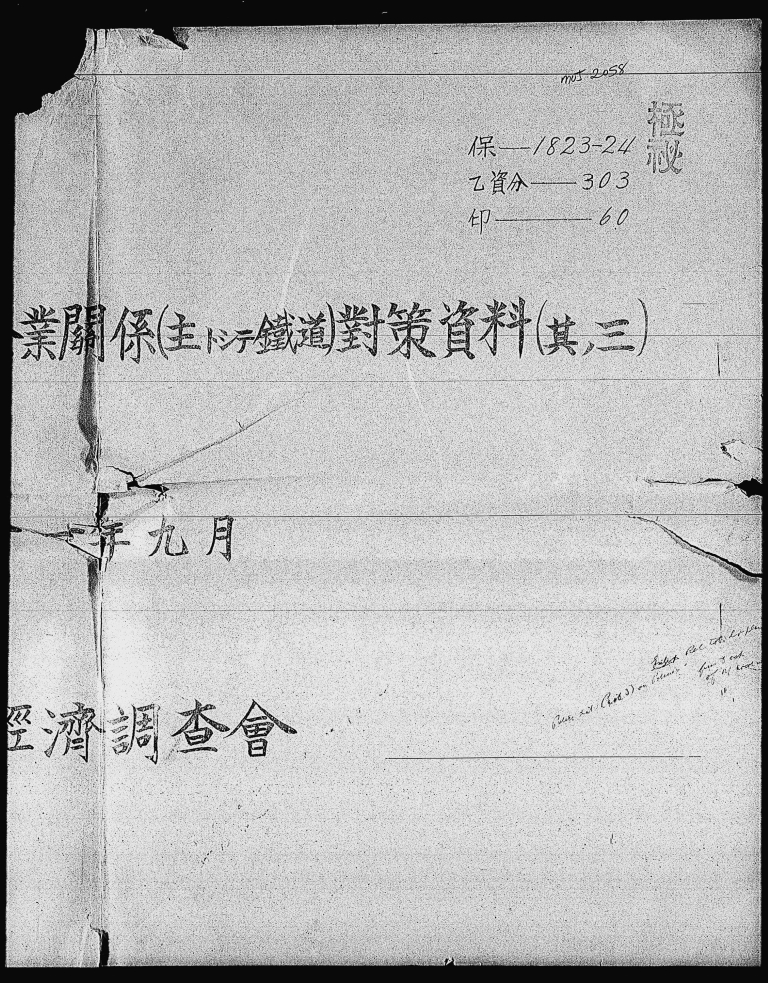 moJ 2058
極祕
保—1823-24
乙資分—303
印—60
業關係(主トシテ鐵道)對策資料(其ノ三)
年九月
經濟調查會